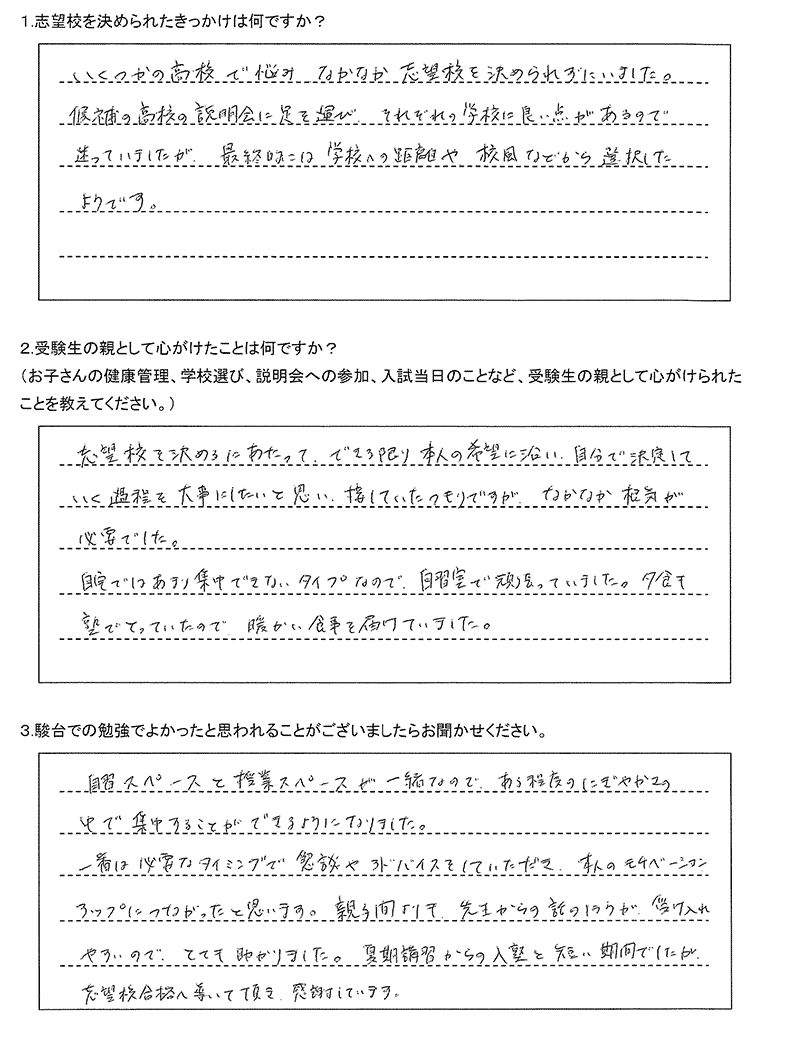 1.志望校を決められたきっかけは何ですか？
いくつかの高校で悩み なかなか 志望校を決められずにいました。
候補の高校の説明会に足を運び、それぞれの学校に良い点があるので
迷っていましたが、最終的には 学校への距離や 校風などから 選択した
ようです。
2.受験生の親として心がけたことは何ですか？
（お子さんの健康管理、学校選び、説明会への参加、入試当日のことなど、受験生の親として心がけられた
ことを教えてください。）
志望校を決めるにあたって、できる限り 本人の希望に沿い、自分で決定して
いく過程を 大事にしたいと思い、接していたつもりですが、なかなか 根気が
必要でした。
自宅ではあまり集中できないタイプなので、自習室で頑張っていました。夕食も
塾でとっていたので、暖かい食事を届けていました。
3.駿台での勉強でよかったと思われることがございましたらお聞かせください。
自習スペースと授業スペースが 一緒なので、ある程度のにぎやかさの
中で 集中することができるようになりました。
一番は 必要なタイミングで 面談や アドバイスをしていただき、本人のモチベーション
アップにつながったと思います。親子間よりも、先生からの話のほうが、受け入れ
やすいので、とても助かりました。夏期講習からの入塾と 短い期間でしたが、
志望校合格へ導いて頂き、感謝しています。